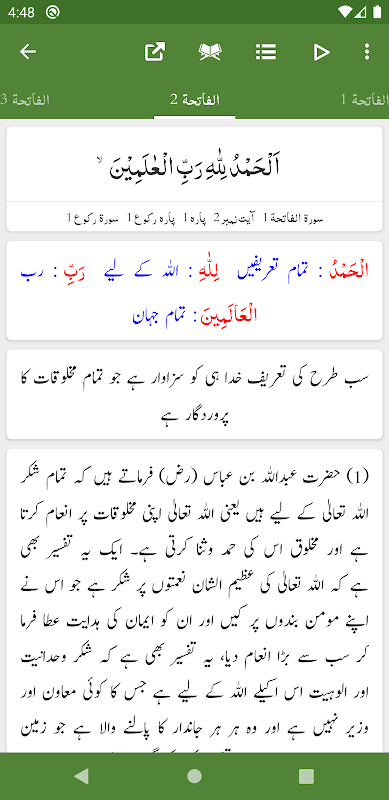 4:48
الفاتحة 1
الفاتحة 2
الفاتحة 3
اَلْحَمْدُ لِلّٰهِ رَبِّ الْعٰلَمِيْنَ ۙ
سورۃ الفاتحۃ 1 آیت نمبر 2 پارہ 1 پارہ رکوع 1 سورۃ رکوع 1
الْحَمْدُ : تمام تعریفیں لِلّٰهِ : اللہ کے لیے رَبِّ : رب
الْعَالَمِينَ : تمام جہان
سب طرح کی تعریف خدا ہی کو سزاوار ہے جو تمام مخلوقات کا
پروردگار ہے
(1) حضرت عبداللہ بن عباس (رض) فرماتے ہیں کہ تمام شکر
اللہ تعالیٰ کے لیے ہیں یعنی اللہ تعالیٰ اپنی مخلوقات پر انعام کرتا
ہے اور مخلوق اس کی حمد وثنا کرتی ہے۔ ایک یہ تفسیر بھی
ہے کہ اللہ تعالیٰ کی عظیم الشان نعمتوں پر شکر ہے جو اس نے
اپنے مومن بندوں پر کیں اور ان کو ایمان کی ہدایت عطا فرما
کر سب سے بڑا انعام دیا، یہ تفسیر بھی ہے کہ شکر وحدانیت
اور الوہیت اس اکیلے اللہ کے لیے ہے جس کا کوئی معاون اور
وزیر نہیں ہے اور وہ ہر ہر جاندار کا پالنے والا ہے جو زمین